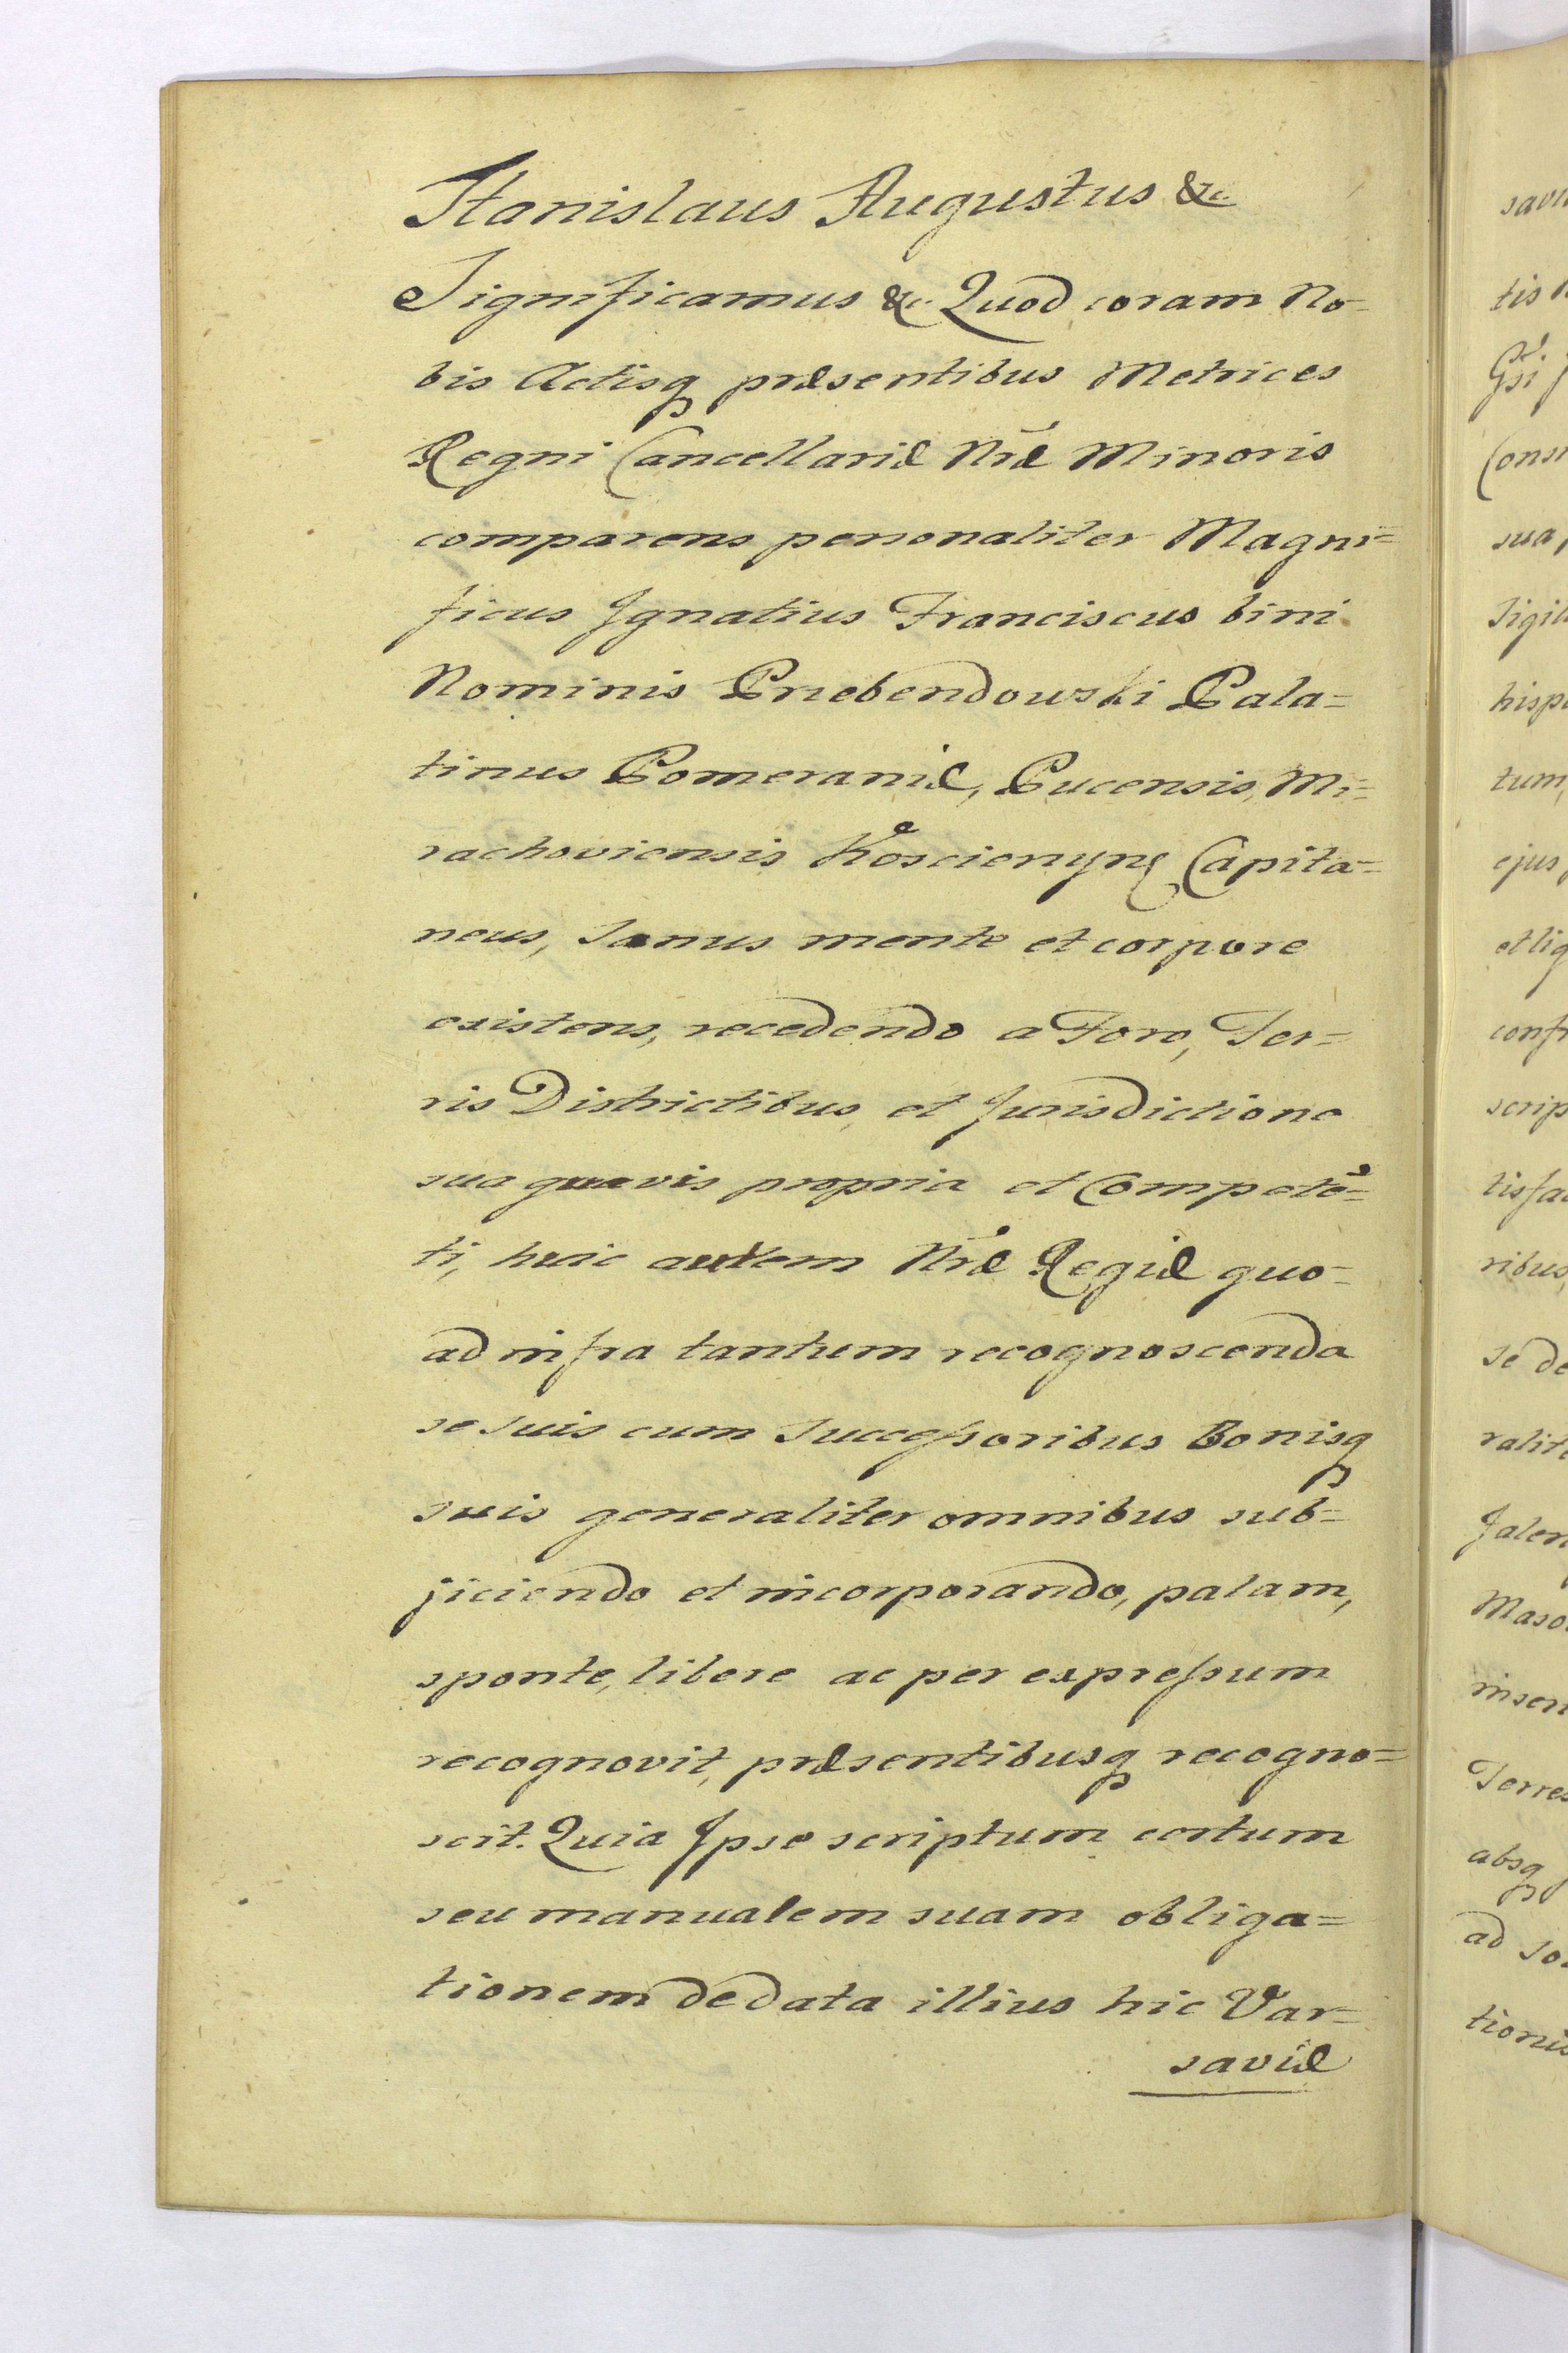 Stanislaus Augustus &c.
Significamus &c. Quod coram No-
bis Actisq præsentibus Metrices
Regni Cancellariæ Nræ Minoris
comparens personaliter Magni=
ficus Ignatius Franciscus bini
Nominis Przebendowski Pala=
tinus Pomeraniæ, Pucensis, Mi=
rachoviensis Koscierzynẽ Capita=
neus, sanus mente et corpore
existens, recedendo a Foro, Ter=
ris Districtibus, et Jurisdictione
sua quavis propria et Competẽ=
ti, huic autem Nræ Regiæ quo=
ad infra tantum recognoscenda
se suis cum Successoribus Bonisq
suis generaliter omnibus sub=
jiciendo et incorporando, palam,
sponte, libere ac per expressum
recognovit, præsentibusq recogno=
scit. Quia Ipse scriptum certum
seu manualem suam obliga=
tionem de data illius hic Var=
saviæ
tis
sua
tum,
ejus
scrip
ribus,
se de
absq
ad